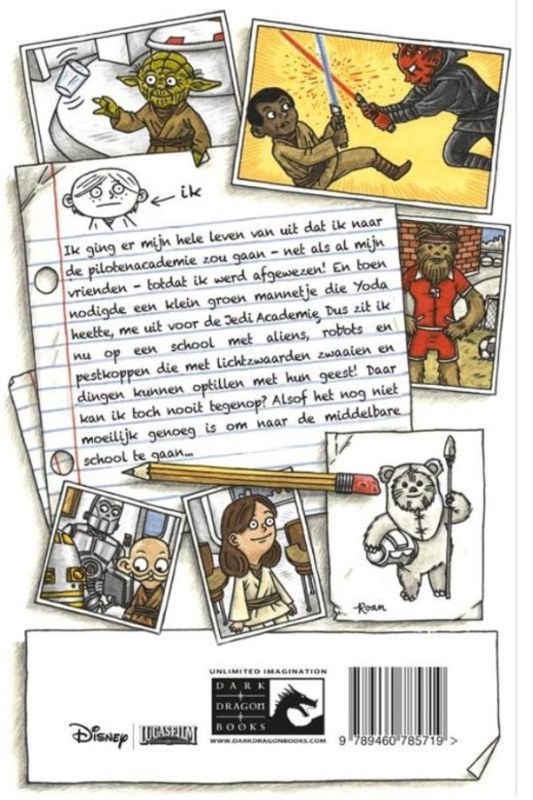 ik
Ik ging er mijn hele leven van uit dat ik naar
de pilotenacademie zou gaan – net als al mijn
vrienden – totdat ik werd afgewezen! En toen
nodigde een klein groen mannetje die Yoda
heette, me uit voor de Jedi Academie. Dus zit ik
nu op een school met aliens, robots en
pestkoppen die met lichtzwaarden zwaaien en
dingen kunnen optillen met hun geest! Daar
kan ik toch nooit tegenop? Alsof het nog niet
moeilijk genoeg is om naar de middelbare
school te gaan...
-Roan
UNLIMITED IMAGINATION
DARK
DRAGON
BOOKS
WWW.DARKDRAGONBOOKS.COM
Disney
LUCASFILM
9 789460 785719 >